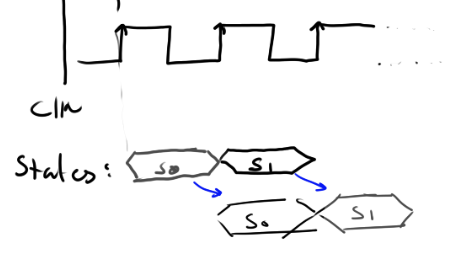 Clk
States: S0 S1
S0 S1